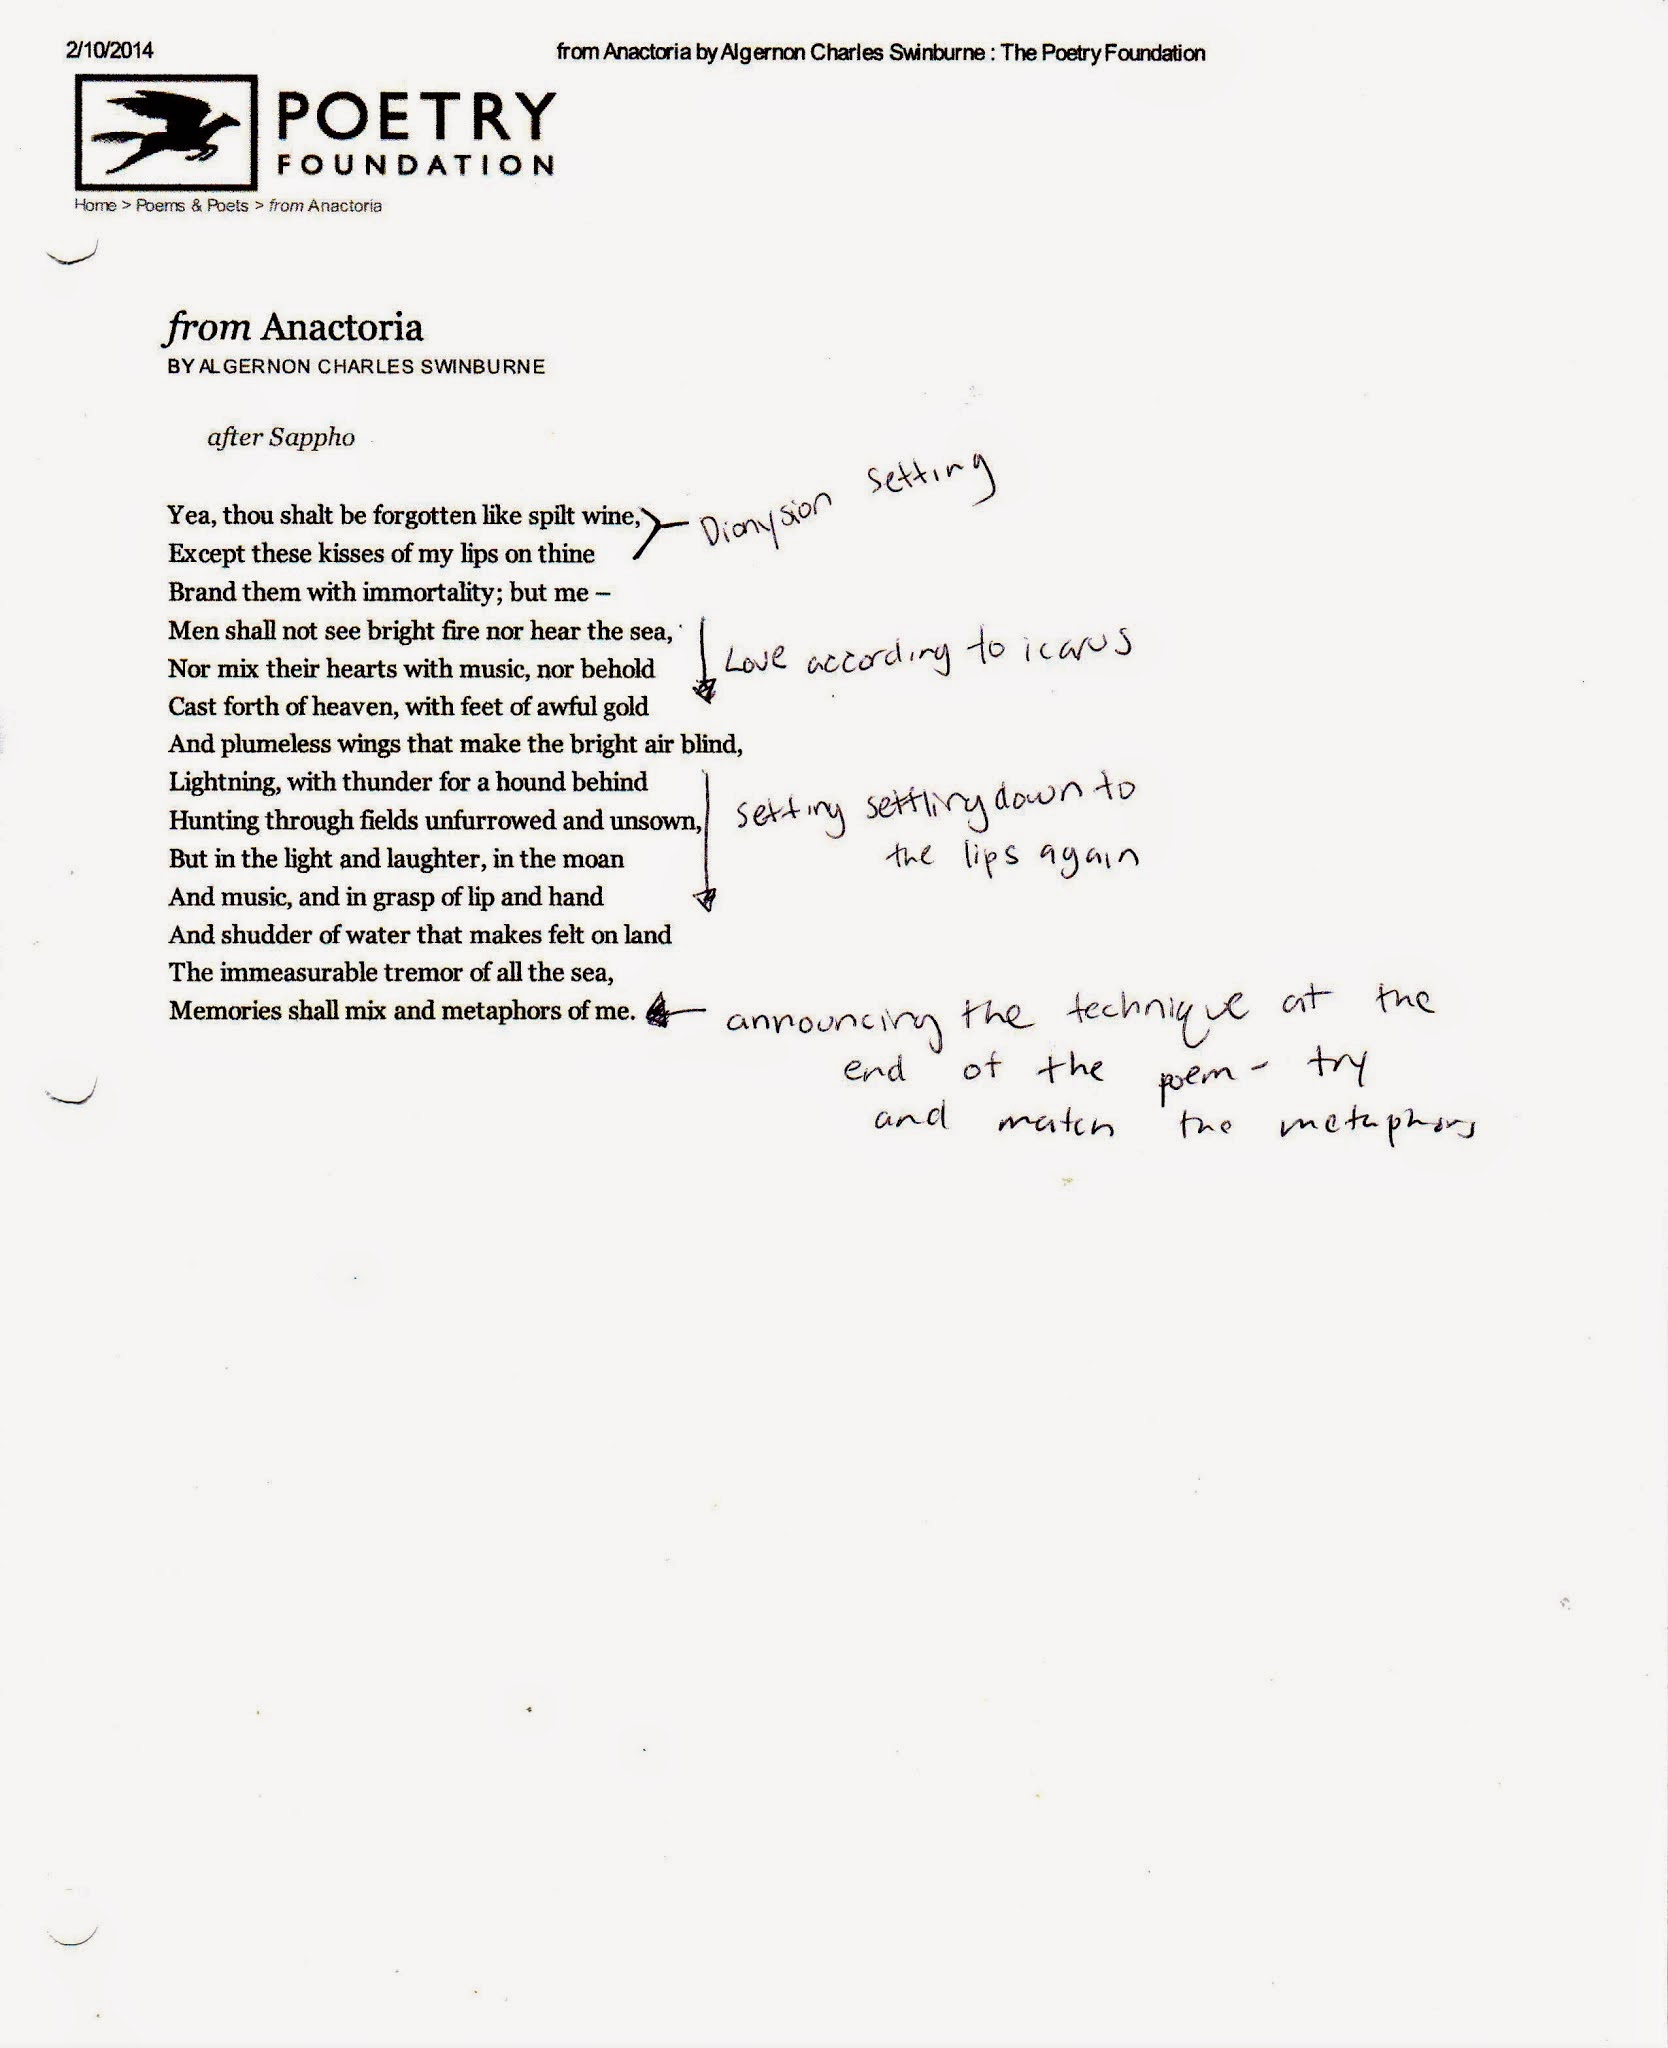 2/10/2014 from Anactoria by Algernon Charles Swinburne : The Poetry Foundation
POETRY
FOUNDATION
Home > Poems & Poets > from Anactoria
from Anactoria
BY ALGERNON CHARLES SWINBURNE
after Sappho
Yea, thou shalt be forgotten like spilt wine,
Except these kisses of my lips on thine
Brand them with immortality; but me –
Men shall not see bright fire nor hear the sea,
Nor mix their hearts with music, nor behold
Cast forth of heaven, with feet of awful gold
And plumeless wings that make the bright air blind,
Lightning, with thunder for a hound behind
Hunting through fields unfurrowed and unsown,
But in the light and laughter, in the moan
And music, and in grasp of lip and hand
And shudder of water that makes felt on land
The immeasurable tremor of all the sea,
Memories shall mix and metaphors of me.
Dionysion setting
Love according to icarus
setting settling down to
the lips again
announcing the technique at the
end of the poem - try
and match the metaphors